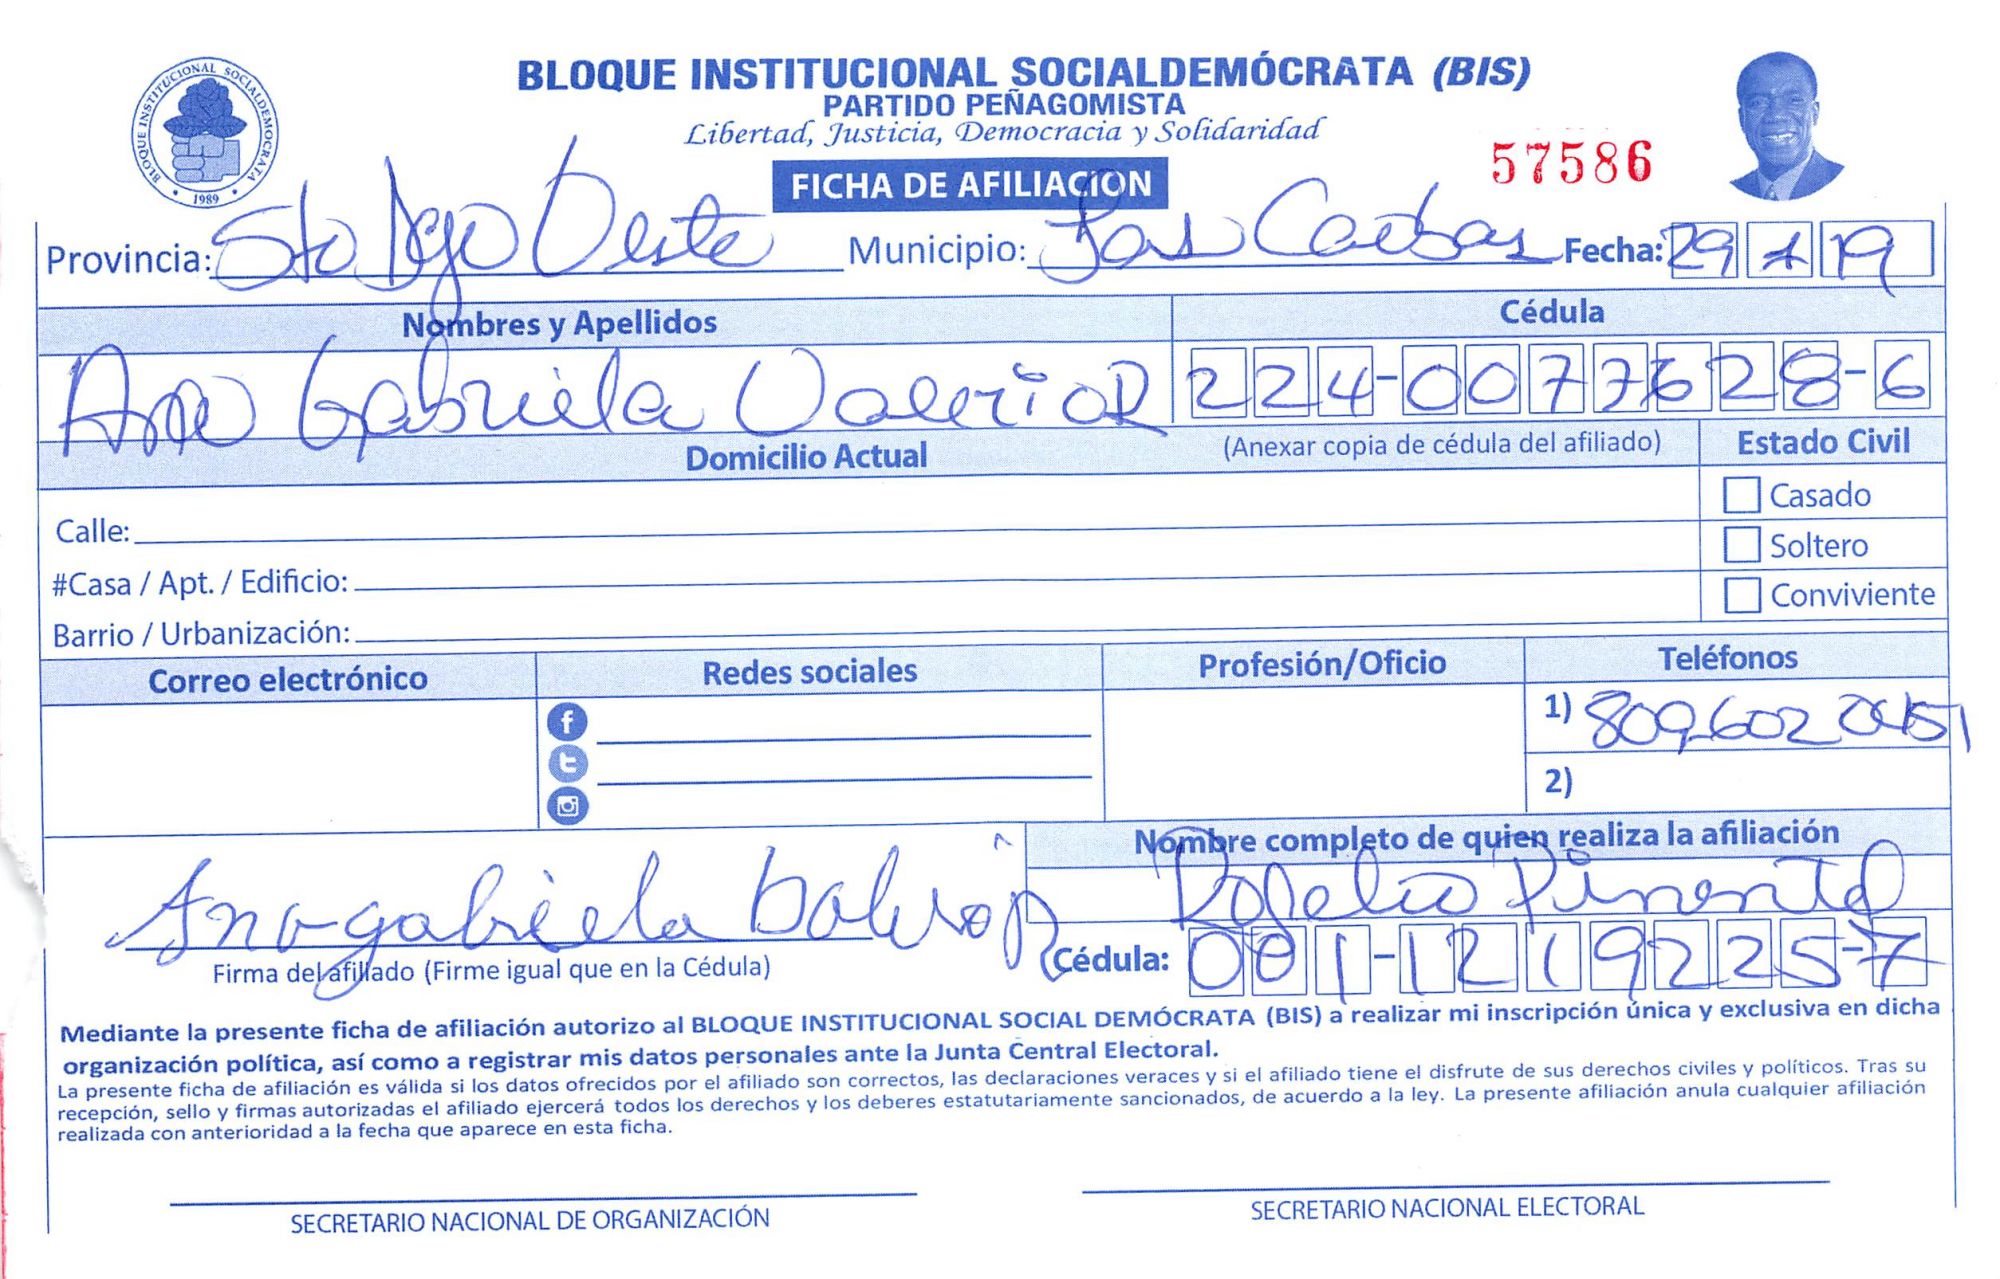 BLOQUE INSTITUCIONAL SOCIALDEMOCRATA
1989
BLOQUE INSTITUCIONAL SOCIALDEMÓCRATA (BIS)
PARTIDO PEÑAGOMISTA
Libertad, Justicia, Democracia y Solidaridad
57586
FICHA DE AFILIACION
Provincia: Sto Dgo Oeste Municipio: Las Caobas Fecha: 29 1 19
Nombres y Apellidos Cédula
Ana Gabriela Valerio R 224-0077628-6
Domicilio Actual (Anexar copia de cédula del afiliado) Estado Civil
Casado
Calle:
Soltero
#Casa / Apt. / Edificio:
Conviviente
Barrio / Urbanización:
Correo electrónico Redes sociales Profesión/Oficio Teléfonos
1) 809602 0451
2)
Nombre completo de quien realiza la afiliación
Rogelio Pimentel
Anagabriela Valerio R
Firma del afiliado (Firme igual que en la Cédula) Cédula: 001-1219225-7
Mediante la presente ficha de afiliación autorizo al BLOQUE INSTITUCIONAL SOCIAL DEMÓCRATA (BIS) a realizar mi inscripción única y exclusiva en dicha
organización política, así como a registrar mis datos personales ante la Junta Central Electoral.
La presente ficha de afiliación es válida si los datos ofrecidos por el afiliado son correctos, las declaraciones veraces y si el afiliado tiene el disfrute de sus derechos civiles y políticos. Tras su
recepción, sello y firmas autorizadas el afiliado ejercerá todos los derechos y los deberes estatutariamente sancionados, de acuerdo a la ley. La presente afiliación anula cualquier afiliación
realizada con anterioridad a la fecha que aparece en esta ficha.
SECRETARIO NACIONAL DE ORGANIZACIÓN SECRETARIO NACIONAL ELECTORAL